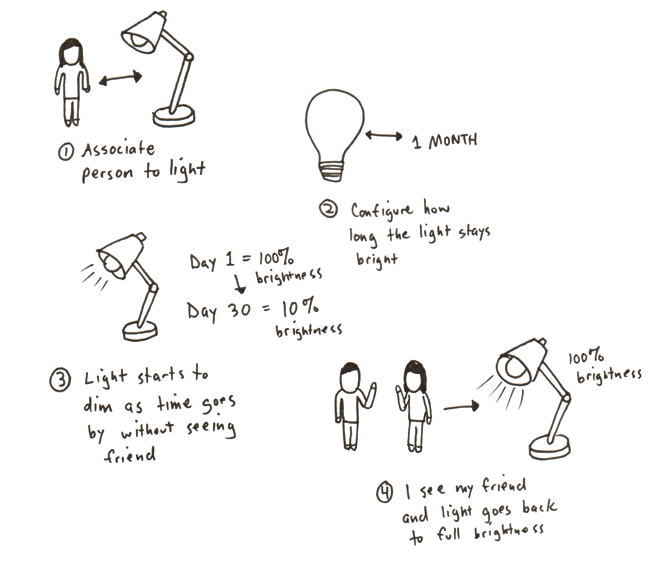 ① Associate
person to light
1 MONTH
② Configure how
long the light stays
bright
Day 1 = 100%
brightness
Day 30 = 10%
brightness
③ Light starts to
dim as time goes
by without seeing
friend
100%
brightness
④ I see my friend
and light goes back
to full brightness